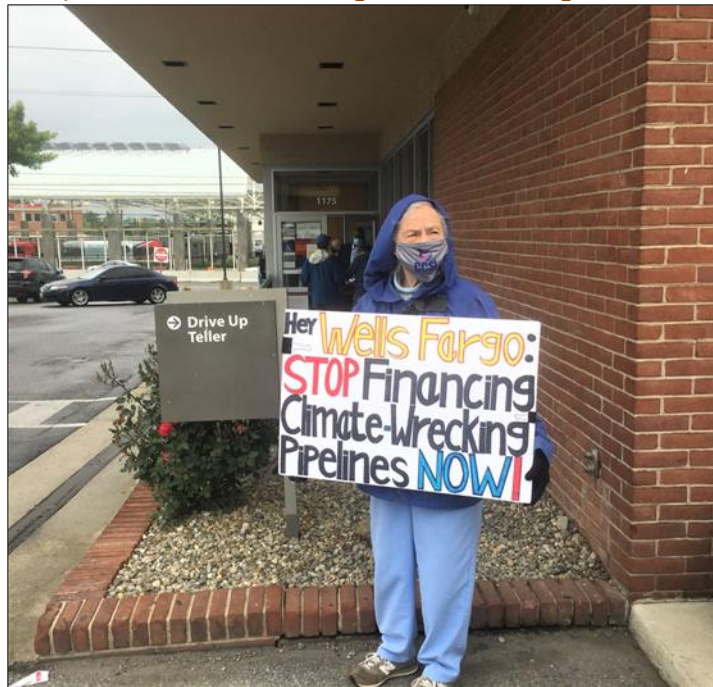 1175
Drive Up
Teller
Hey Wells Fargo:
STOP Financing
Climate-Wrecking
Pipelines NOW!